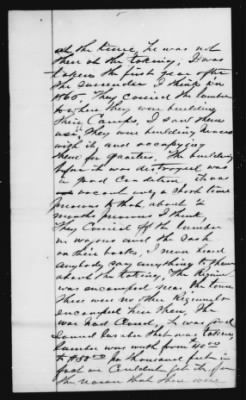 at the time, he was not
then at the taking, It was
taken the first year after
the surrender I think in
1865, They carried the lumber
to where they were building
their Camps, I saw them
use it they were building houses
with it, and occupying
them for quarters. The building
before it was destroyed was
in good condition it was
vacant only a short time
previous to that about 2
months previous I think,
They carried off the lumber
in wagons and the Sash
on their backs, I never heard
anybody say anything to them
about the taking, The Regiment
was encamped near the town
There were no other Regiments
encamped here then, The
war had Closed, It was good
lumber that was taken
lumber was worth from $40.00
to $50.00 per thousand feet in
fact we Couldn't get it for
the reason that there were